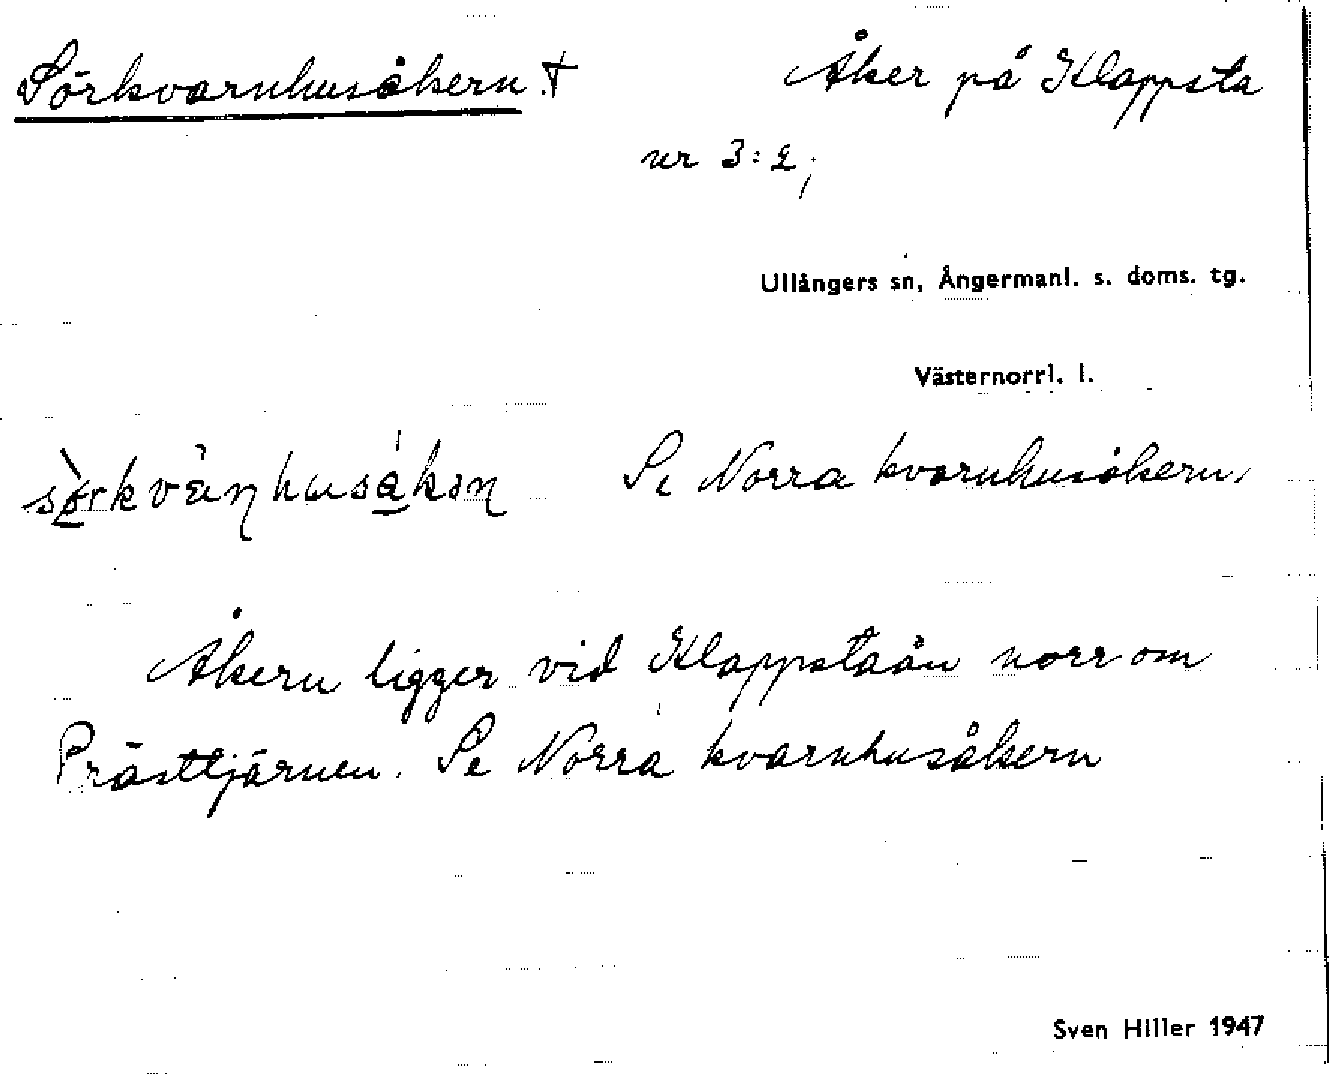 Sörkvarnhusåkern † Åker på Klappsta
nr 3:2;
Ullångers sn, Ångermanl. s. doms. tg.
Västernorrl. l.
Se Norra kvarnhusåkern,
Åkern ligger vid Klappstaån norr om
Prästtjärnen. Se Norra kvarnhusåkern
Sven Hiller 1947